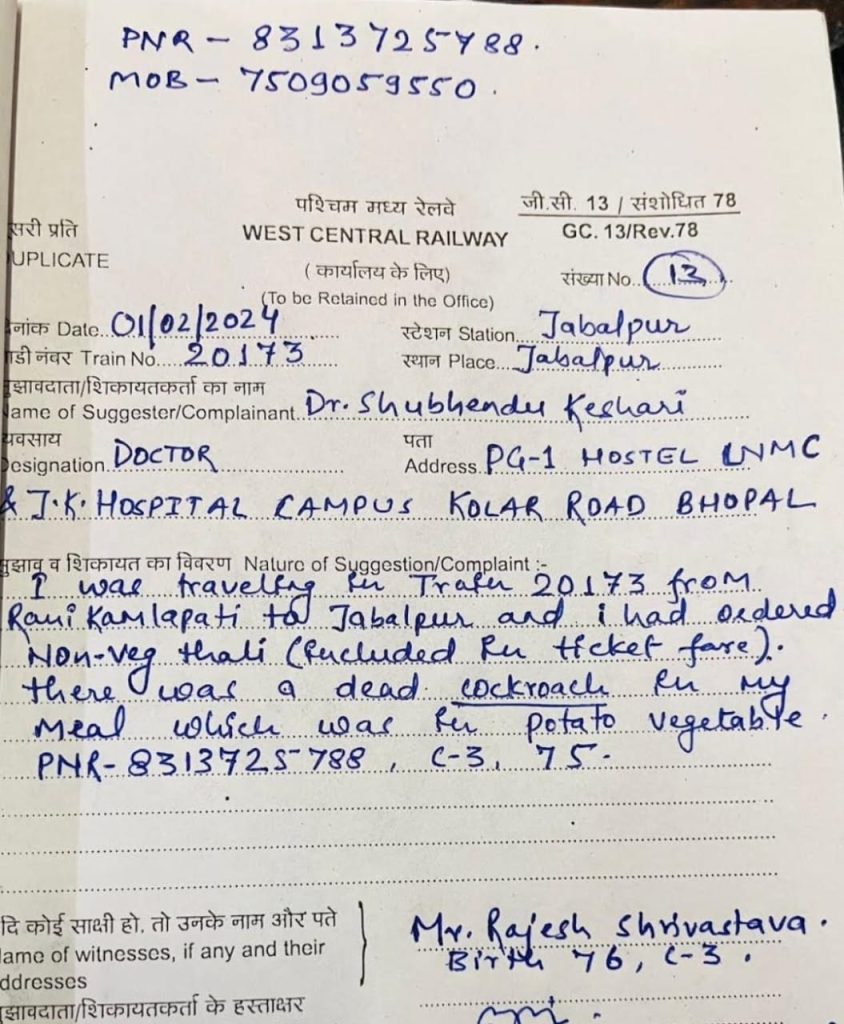 PNR - 8313725788.
MOB - 7509059550.
पश्चिम मध्य रेलवे
जी.सी. 13 / संशोधित 78
सरी प्रति
WEST CENTRAL RAILWAY
GC. 13/Rev.78
UPLICATE
(कार्यालय के लिए)
संख्या No. 13
(To be Retained in the Office)
नांक Date. 01/02/2024
स्टेशन Station. Jabalpur
डी नंबर Train No. 20173
स्थान Place. Jabalpur
झावदाता/शिकायतकर्ता का नाम
ame of Suggester/Complainant. Dr. Shubhendu Keshari
यवसाय
पता
esignation. DOCTOR
Address. PG-1 HOSTEL LNMC
& J.K. HOSPITAL CAMPUS KOLAR ROAD BHOPAL
झाव व शिकायत का विवरण Nature of Suggestion/Complaint :-
I was traveling in Train 20173 from
Rani Kamlapati to Jabalpur and i had ordered
Non-veg thali (included in ticket fare).
there was a dead cockroach in my
meal which was in potato vegetable.
PNR-8313725788, C-3, 75.
दि कोई साक्षी हो, तो उनके नाम और पते
Mr. Rajesh Shrivastava.
ame of witnesses, if any and their
Birth 76, C-3.
ddresses
झावदाता/शिकायतकर्ता के हस्ताक्षर